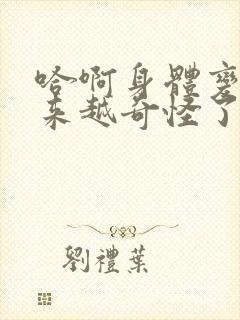 哈啊身體變
来越奇怪了
劉禮葉